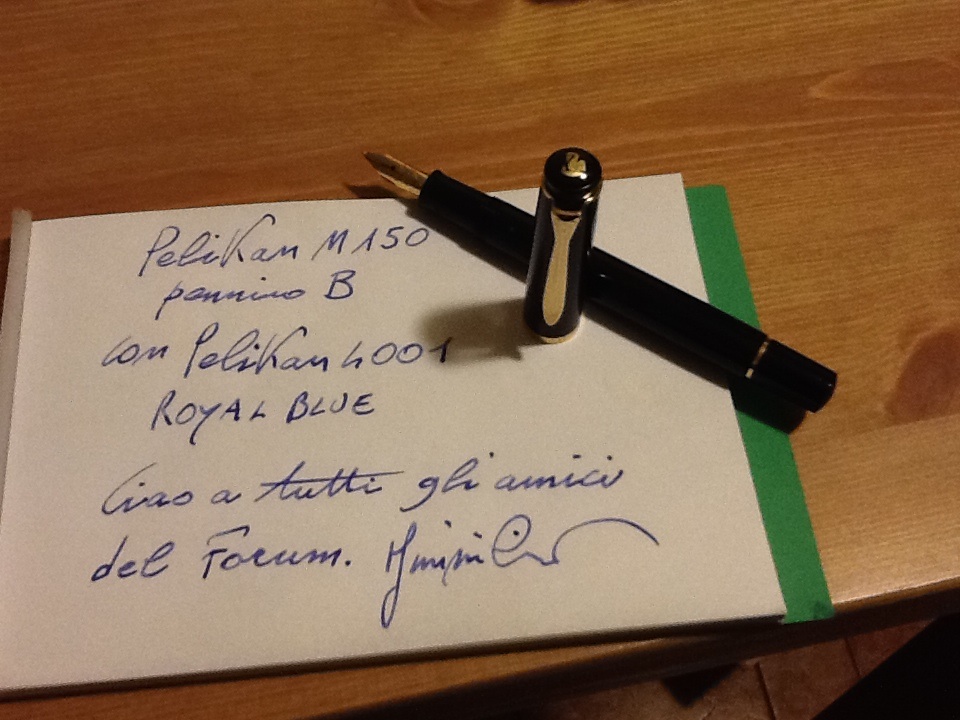 Pelikan M150
pennino B
con Pelikan 4001
ROYAL BLUE
Ciao a tutti gli amici
del Forum.